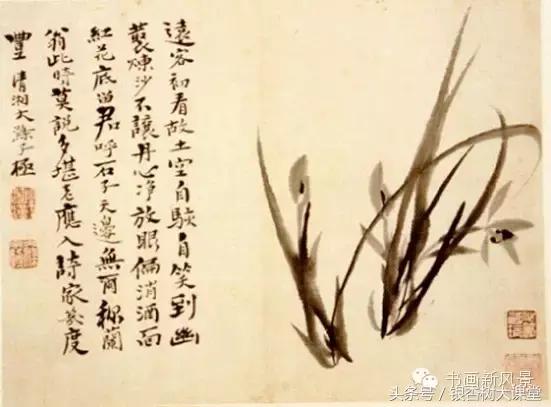 遠客初看故土空自駭自笑到幽
藂煉沙不讓丹心净放眼偏消酒面
紅花底留君呼石子天邊無可稱蘭
翁此時莫說多堪老應入詩家幾度
豐 清湘大滌子極
书画新风景
头条号 / 银杏树大课堂